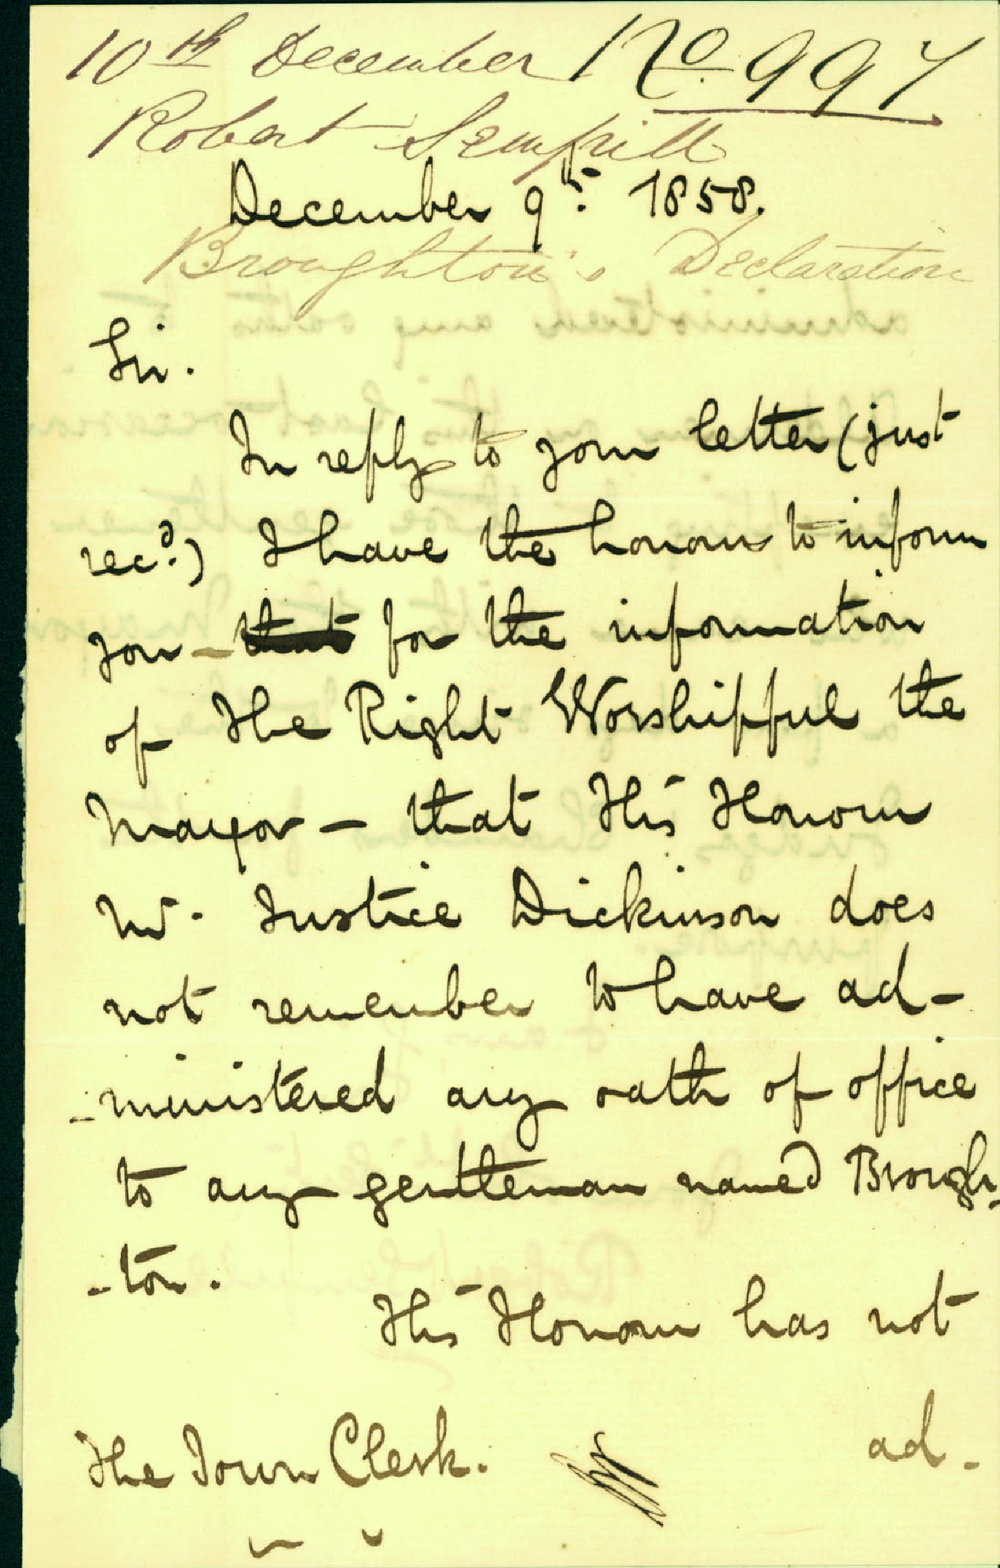 10th December No 997
Robert Sempill
December 9th 1858.
Broughton's Declaration
Sir.
In reply to your letter (just
recd.) I have the honour to inform
you - that for the information
of The Right Worshipful the
Mayor - that His Honour
Mr. Justice Dickinson does
not remember to have ad-
-ministered any oath of office
to any gentleman named Brough-
-ton.
His Honour has not
The Town Clerk.
ad-